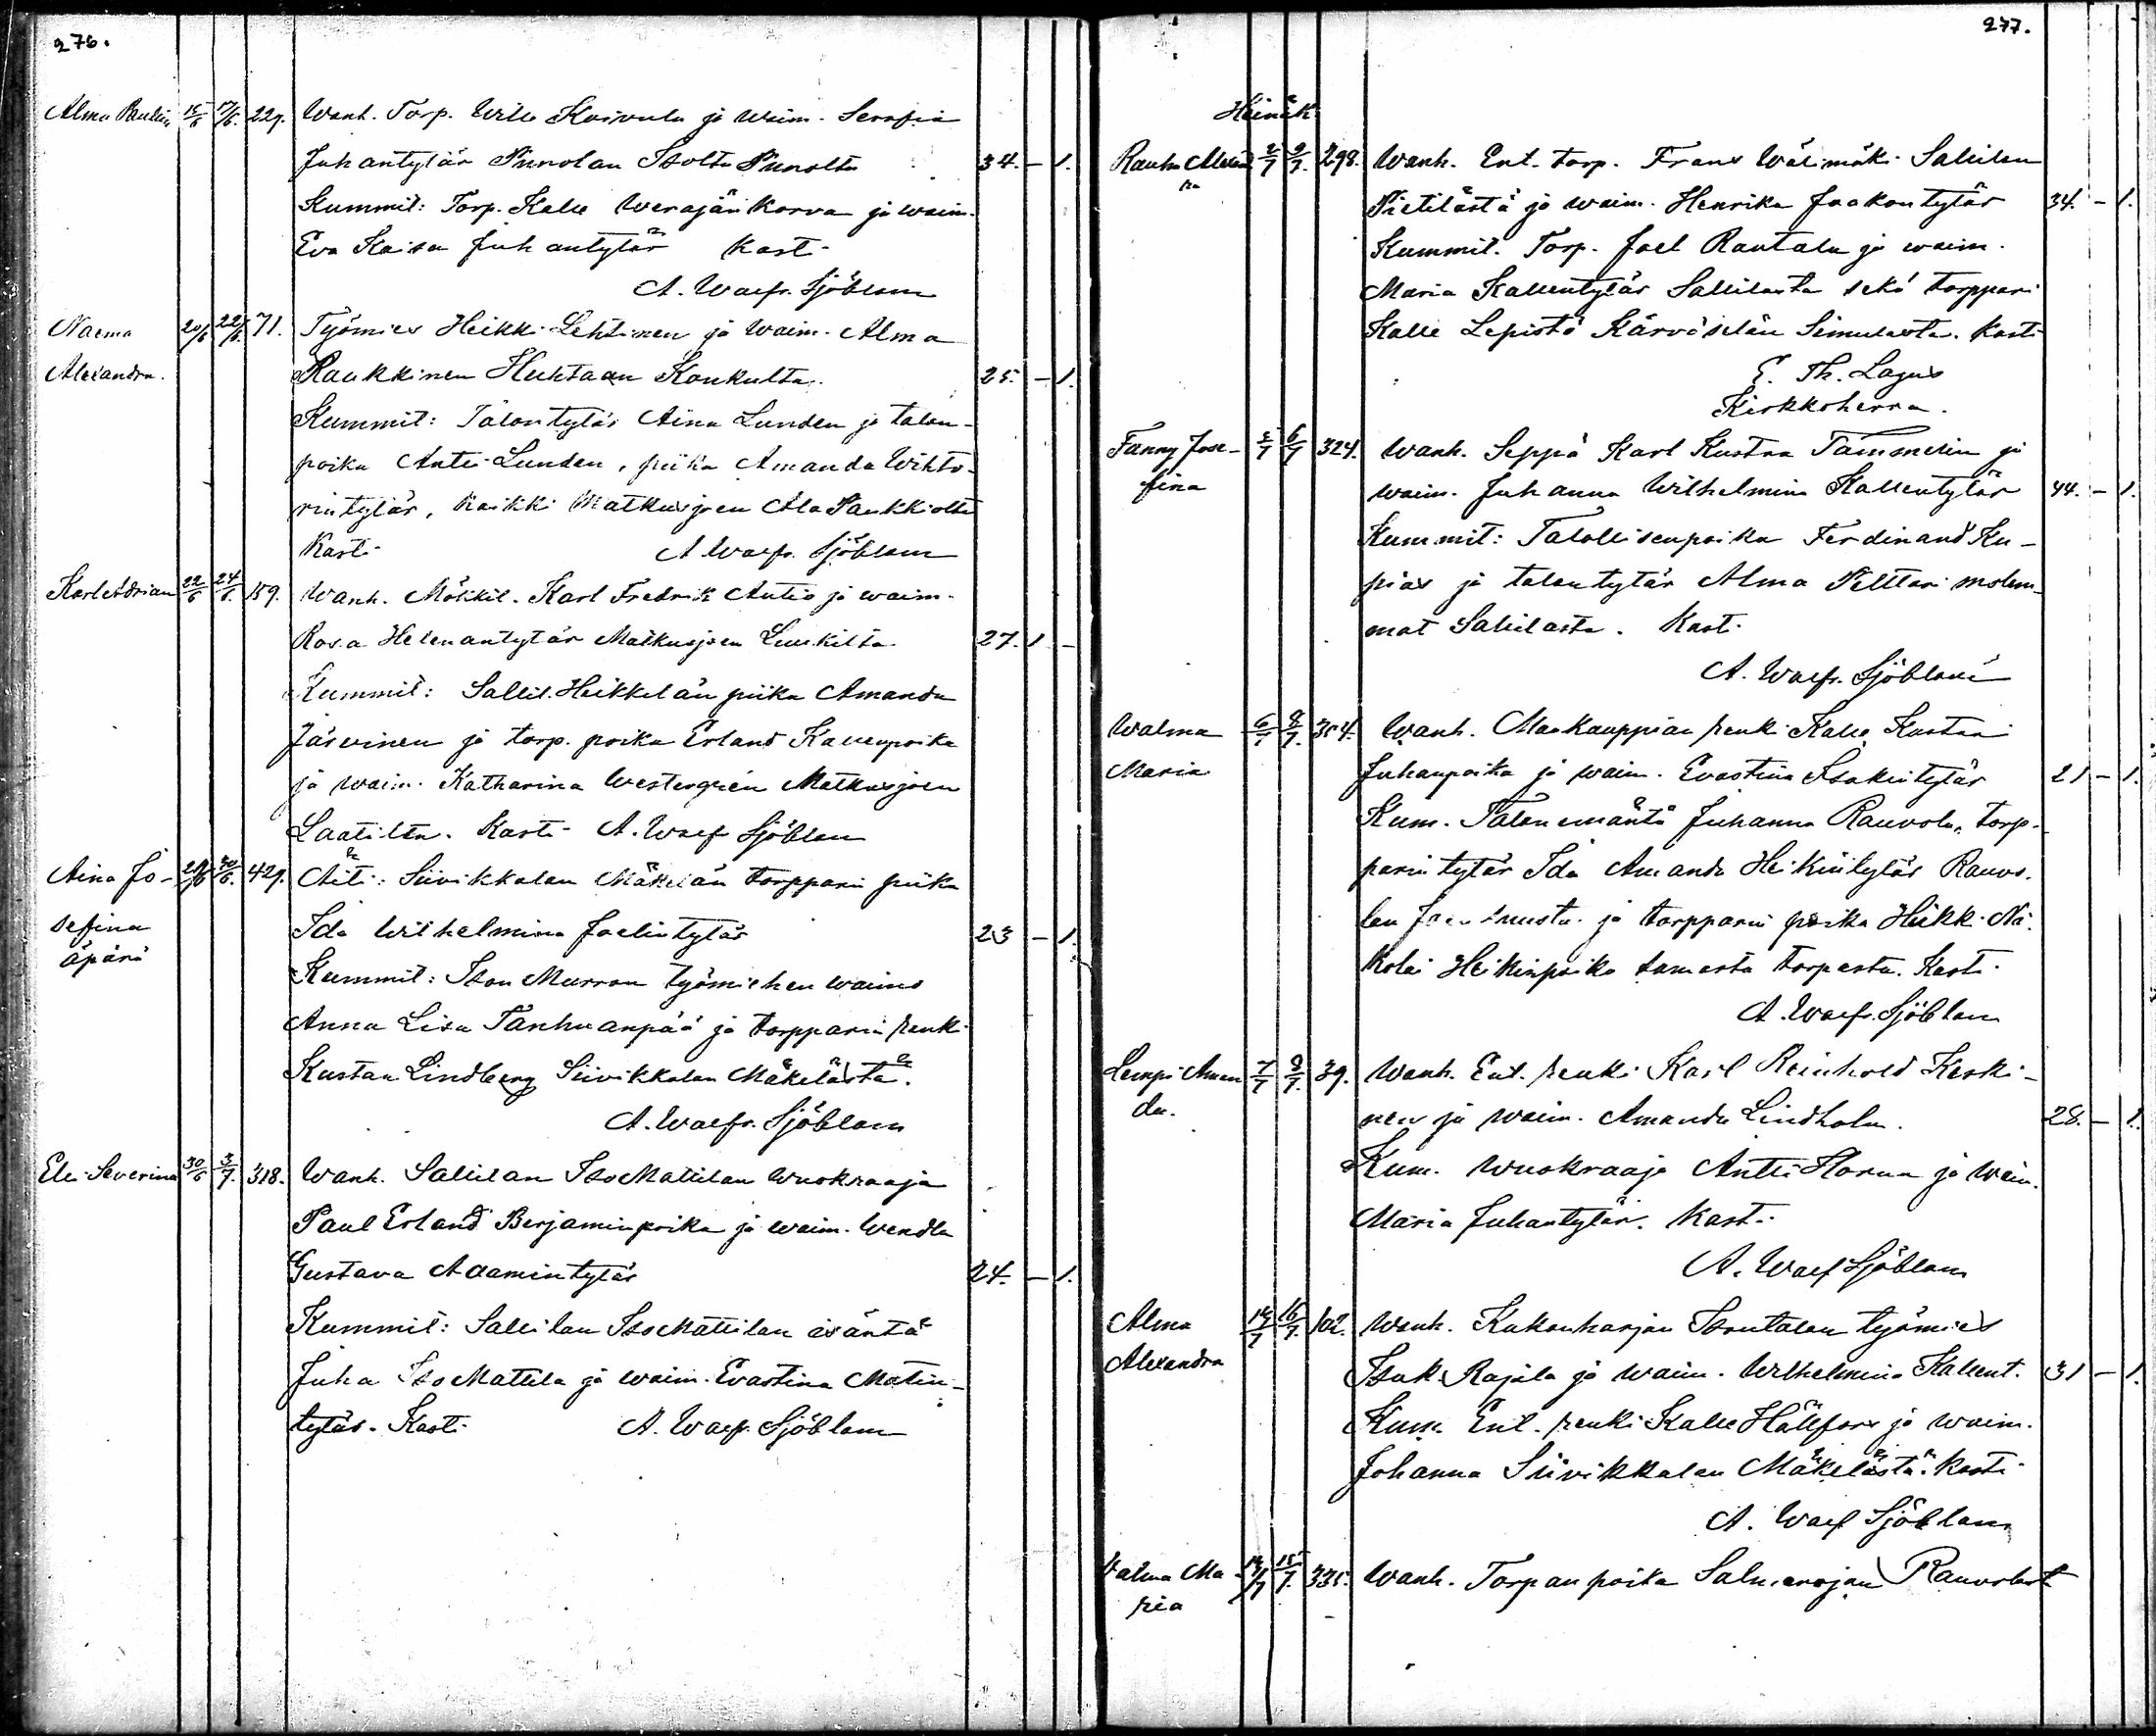 276.
Alma Paulina 15/6 17/6. 229. Wanh. Torp. Wille Koivula ja waim. Serafia
Juhantytär Punolan Isolta Punolta 34. - 1.
Kummit: Torp. Kalle Werajänkorva ja waim.
Eva Kaisa Juhantytär Kasti
A. Waefr. Sjöblom
Naema 20/6 22/6. 71. Työmies Heikki Lehtinen ja waim. Alma
Alexandra. Raukkinen Huhtaan Koukulta. 25. - 1.
Kummit: Talontytär Aina Lunden ja talon-
poika Antti Lunden, piika Amanda Wihto-
rintytär, kaikki Matkusjoen Ala Paukkiolta
Kasti A. Waefr. Sjöblom
Karl Adrian 22/6 24/6. 159. Wanh. Mökkil. Karl Fredrik Antio ja waim.
Rosa Helenantytär Matkusjoen Luukilta 27. 1 -
Kummit: Sallil. Heikkilän piika Amanda
Järvinen ja torp. poika Erland Kallenpoika
ja waim. Katharina Westergrén Matkusjoen
Laatilta. Kasti A. Waef Sjöblom
Aina Jo- 28/6 30/6. 429. Äiti: Siivikkalan Mäkelän torpparin piika
sefina Ida Wilhelmina Joelintytär 23 - 1.
äpärä
Kummit: Ison Murron työmiehen waimo
Anna Lisa Tanhuanpää ja torpparin renki
Kustaa Lindberg Siivikkalan Mäkelästä.
A. Waefr. Sjöblom
Eli Severina 30/6 3/7. 318. Wanh. Sallilan IsoMattilan wuokraaja
Paul Erland Benjaminpoika ja waim. Wendla
Gustava Aaamintytär 24. - 1.
Kummit: Sallilan IsoMattilan isäntä
Juha IsoMattila ja waim. Evastina Matin-
tytär. Kasti A. Waef. Sjöblom
277.
Heinäk.
Rauha Alexand- 2/7 9/7. 298. Wanh. Ent. torp. Frans Wälimäki Sallilan
ra Pietilästä ja waim. Henrika Jaakontytär 34. - 1.
Kummit. Torp. Joel Rautala ja waim.
Maria Kallentytär Sallilasta sekä torppari
Kalle Lepistö Kärväselän Simulasta. Kasti
E. Th. Lagus
Kirkkoherra.
Fanny Jose- 5/7 6/7 324. Wanh. Seppä Karl Kustaa Tammelin ja
fina waim. Juhanna Wilhelmina Kallentytär 44. - 1.
Kummit: Talollisenpoika Ferdinand Ku-
pias ja talontytär Alma Pelttari molem-
mat Sallilasta. Kasti
A. Waefr. Sjöblom
Walma 6/7 8/7. 304. Wanh. Maakauppian renki Kalle Kustaa
Maria Juhanpoika ja waim. Evastina Isakintytär 21 - 1.
Kum. Talon emäntä Juhanna Rauvola, torp-
parin tytär Ida Amanda Heikintytär Rauvo-
lan ja torpparin poika Heikki Ni-
kolai Heikinpoika samasta torpasta. Kasti
A. Waefr. Sjöblom
Lempi Aman- 7/7 9/7. 39. Wanh. Ent. renki Karl Reinhold Keski-
da. nen ja waim. Amanda Lindholm. 28. - 1.
Kum. Wuokraaja Antti Horna ja waim.
Maria Juhantytär. Kasti
A. Waef Sjöblom
Alma 14/7 16/7. 102. Wanh. Kakonharjan Isontalon työmies
Alexandra Isak Rajala ja waim. Wilhelmina Kallent. 31 - 1.
Kum. Ent. renki Kalle Hällfors ja waim.
Johanna Siivikkalan Mäkelästä. Kasti
A. Waef Sjöblom
Valma Ma- 14/7 15/7. 335. Wanh. Torpan poika Salmenojan Rauvolast
ria